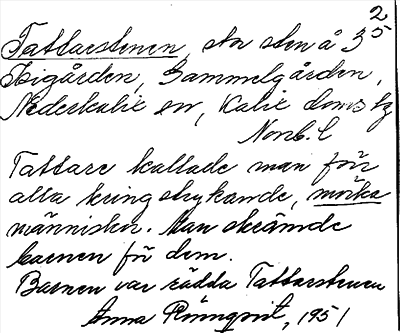 2
Tattarstenen, stor sten å 35
Isigården, Gammelgården,
Nederkalix sn, Kalix doms hg
Norrb. l
Tattare kallade man för
alla kring strykande, mörka
människor. Man skrämde
barnen för dem.
Barnen var rädda Tattarstenen
Anna Rönnqvist, 1951